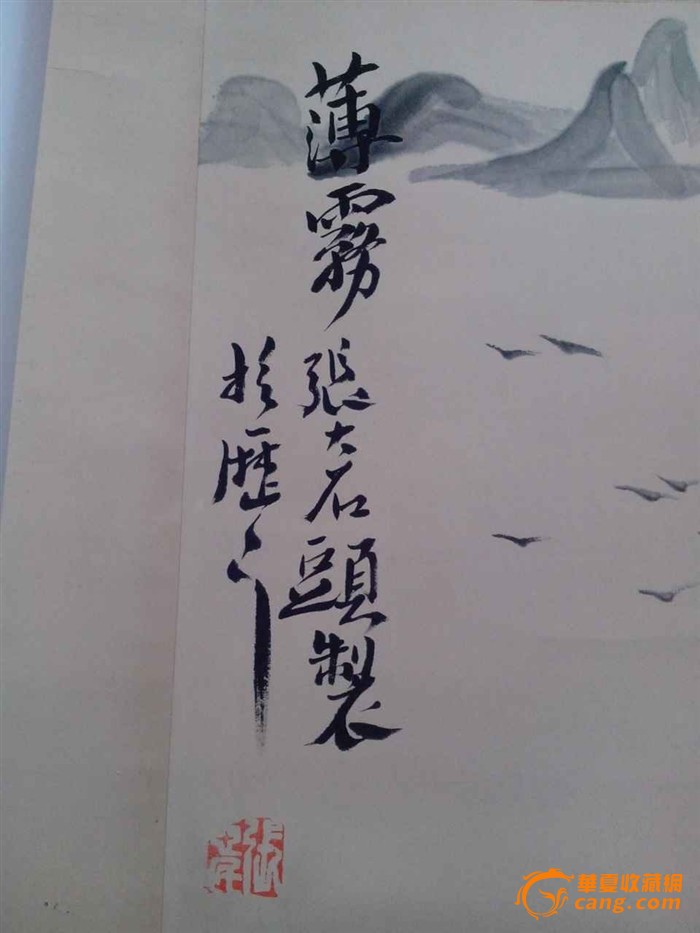 薄霧張大石頭製
於歷下
華夏收藏網
cang.com